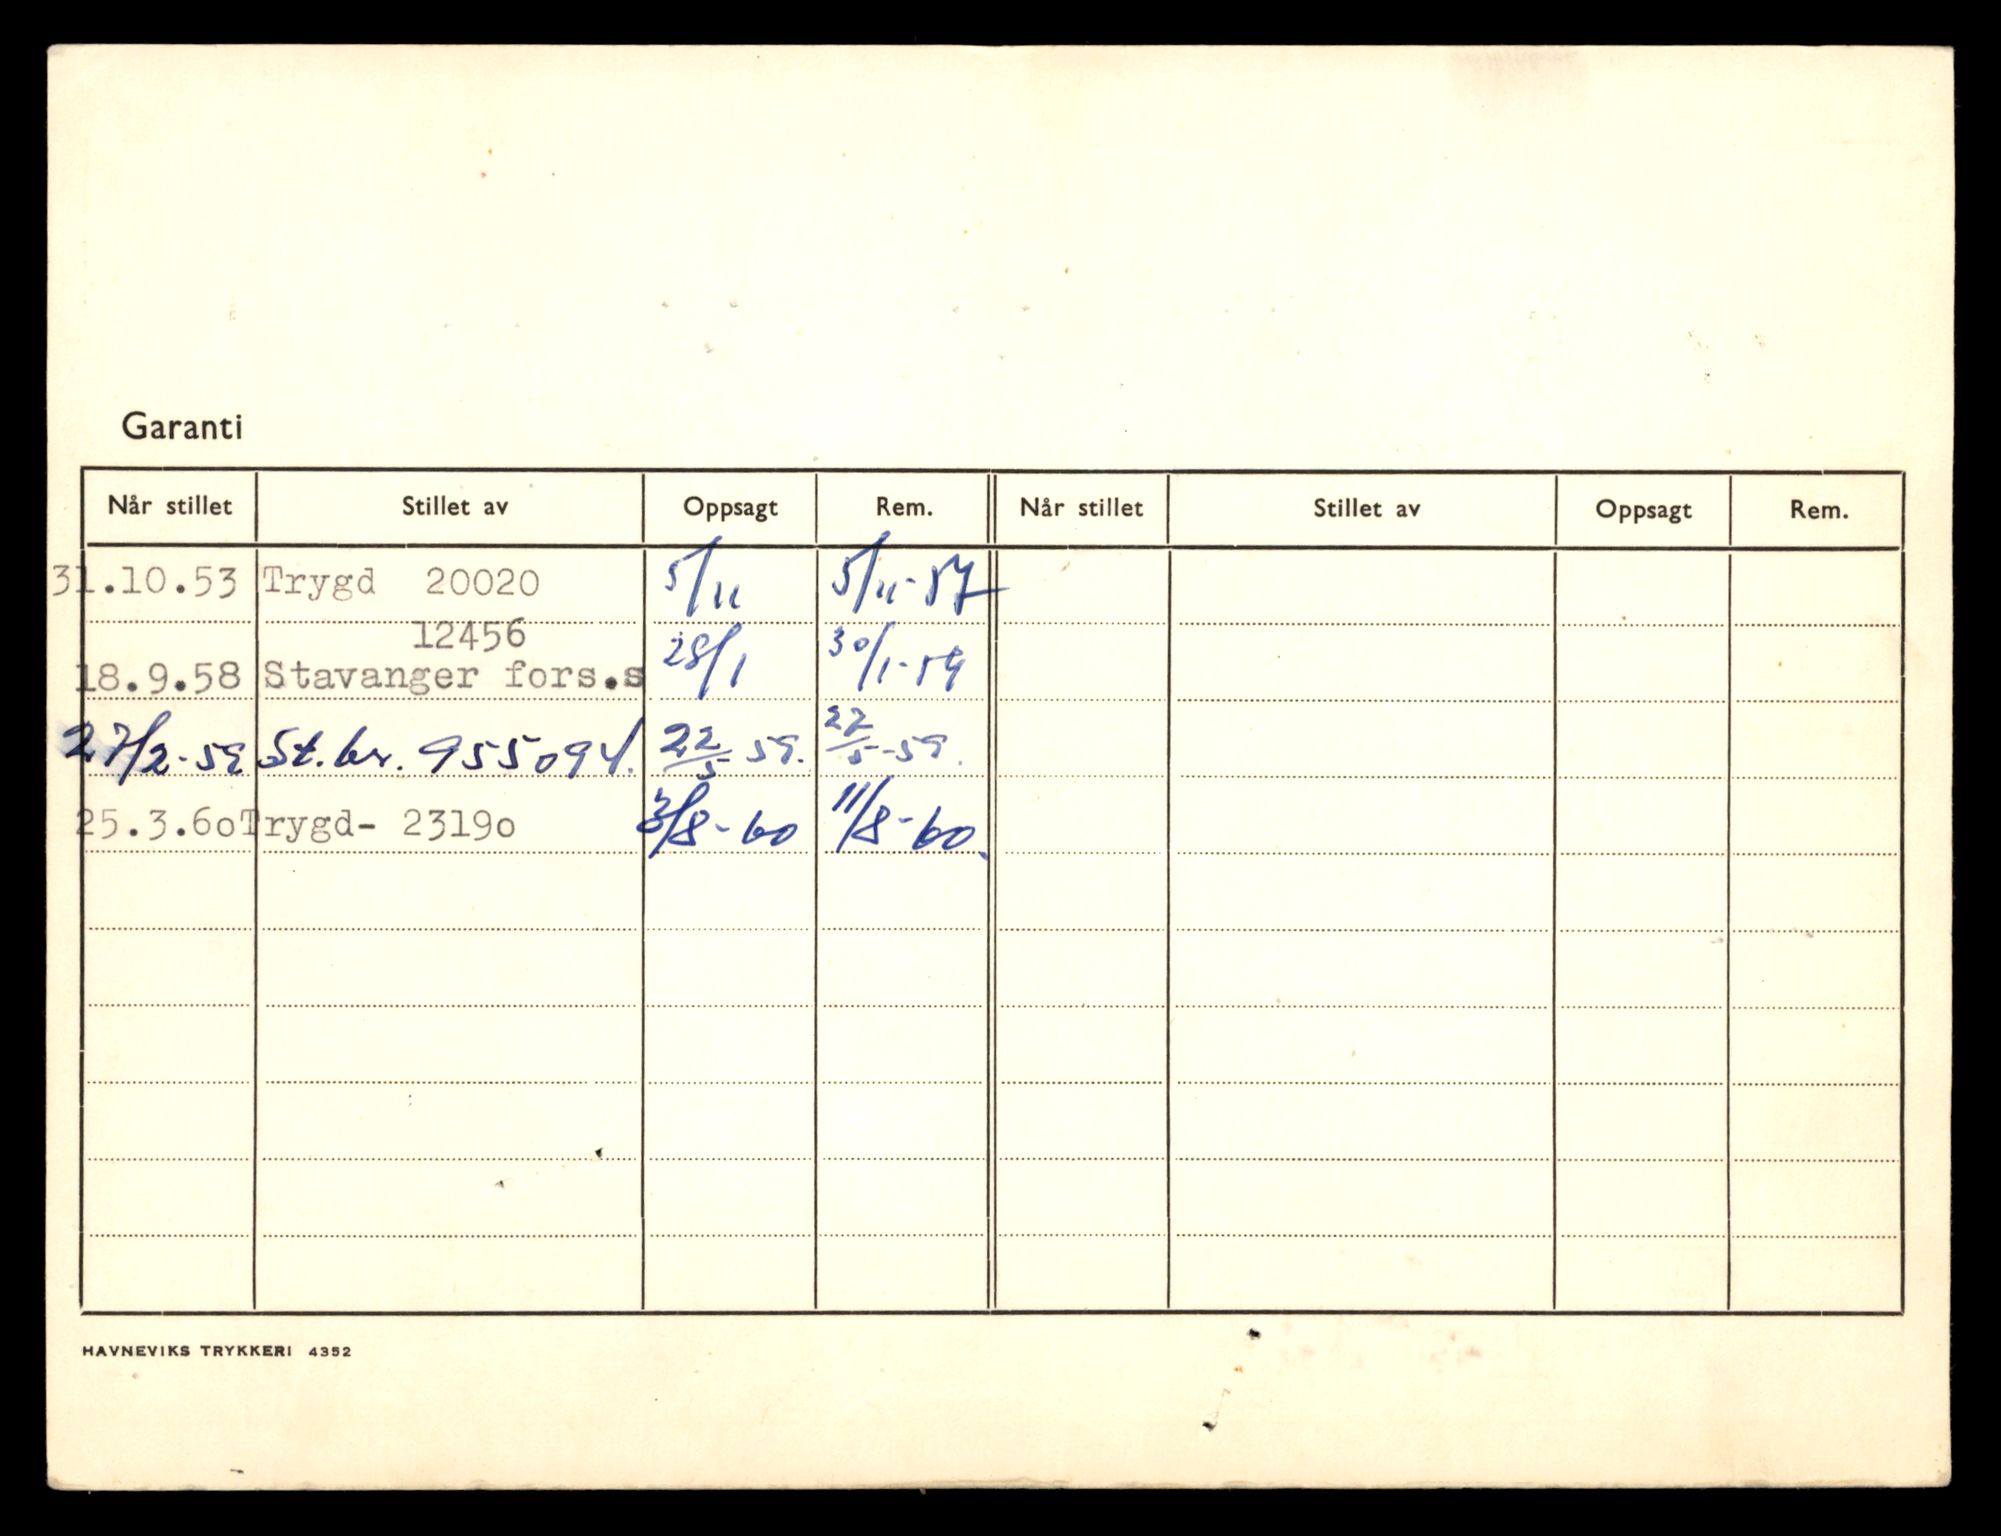 Garanti
Når stillet Stillet av Oppsagt Rem. Når stillet Stillet av Oppsagt Rem.
31.10.53 Trygd 20020 5/11 5/11-57
12456
18.9.58 Stavanger fors.s 28/1 30/1-59
27/2-59 St.br. 955094. 22/5 59. 22/5-59.
25.3.60 Trygd- 23190 3/8-60 11/8-60.
HAVNEVIKS TRYKKERI 4352